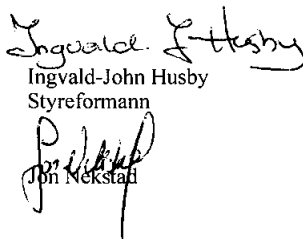 Ingvald. J Husby
Ingvald-John Husby
Styreformann
Jon Nekstad
Jon Nekstad